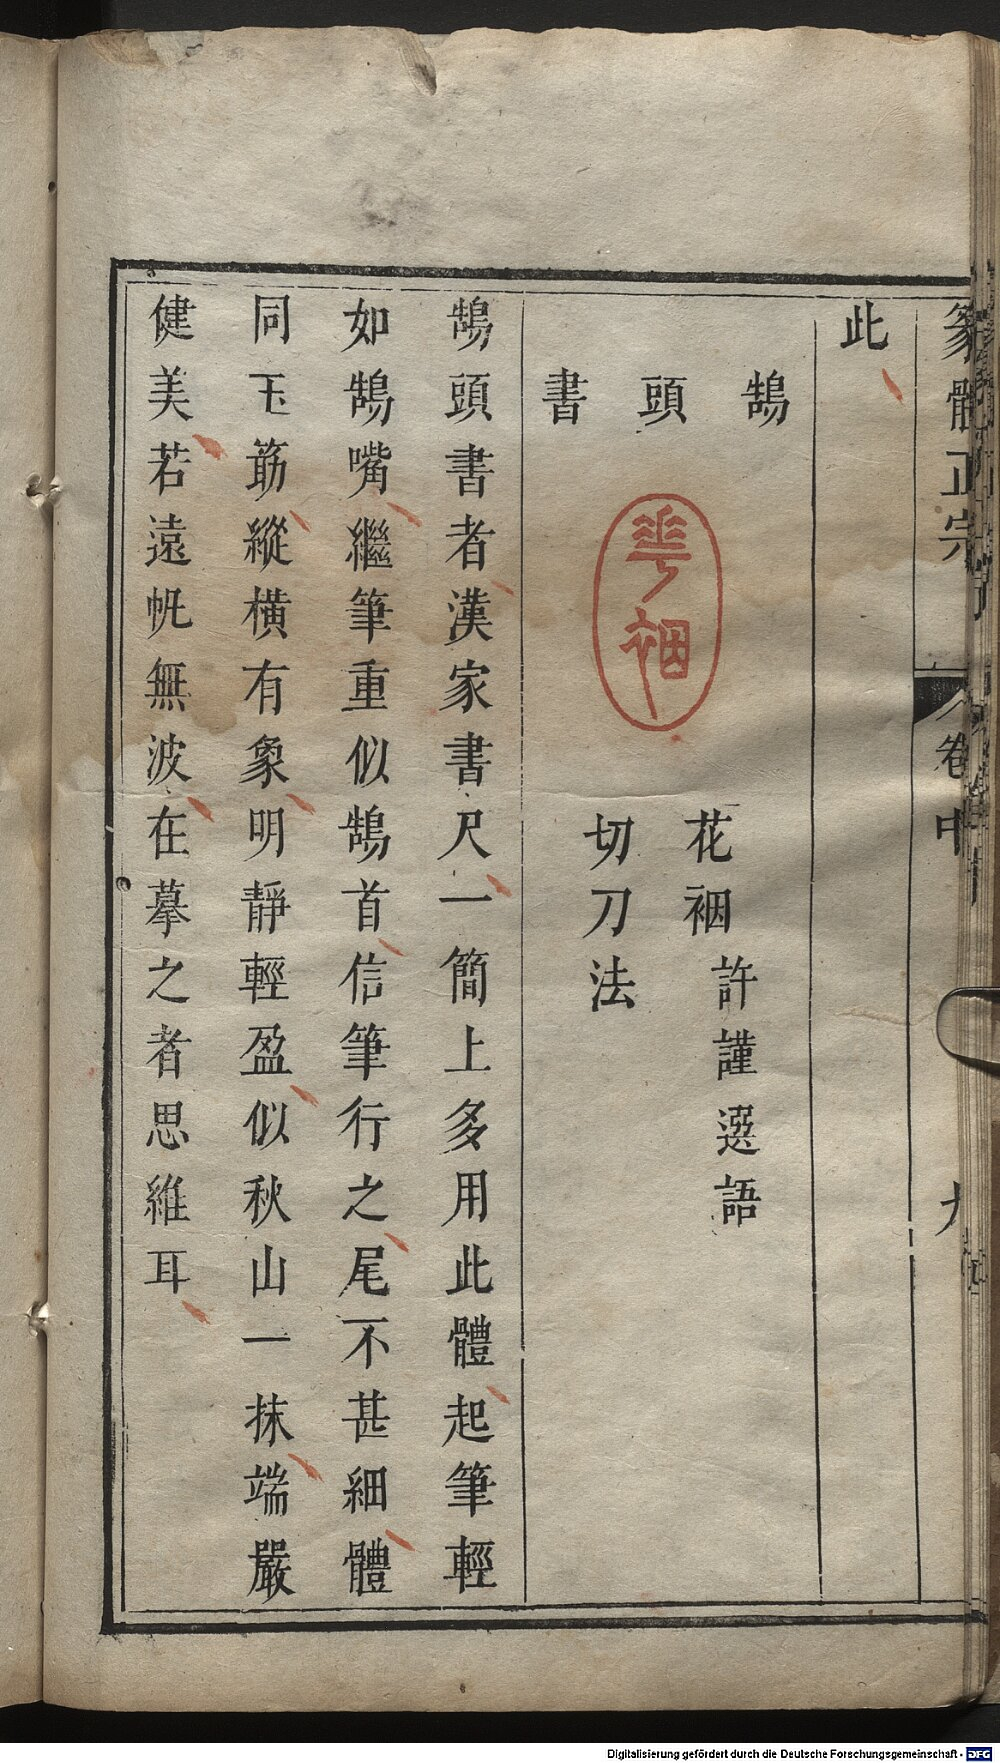 篆體正宗
卷中
九
此
鵠
頭
書
華裀
花裀 許謹選語
切刀法
鵠頭書者漢家書尺一簡上多用此體起筆輕
如鵠嘴繼筆重似鵠首信筆行之尾不甚細體
同玉筯縱橫有象明靜輕盈似秋山一抹端嚴
健美若遠帆無波在摹之者思維耳
Digitalisierung gefördert durch die Deutsche Forschungsgemeinschaft - DFG